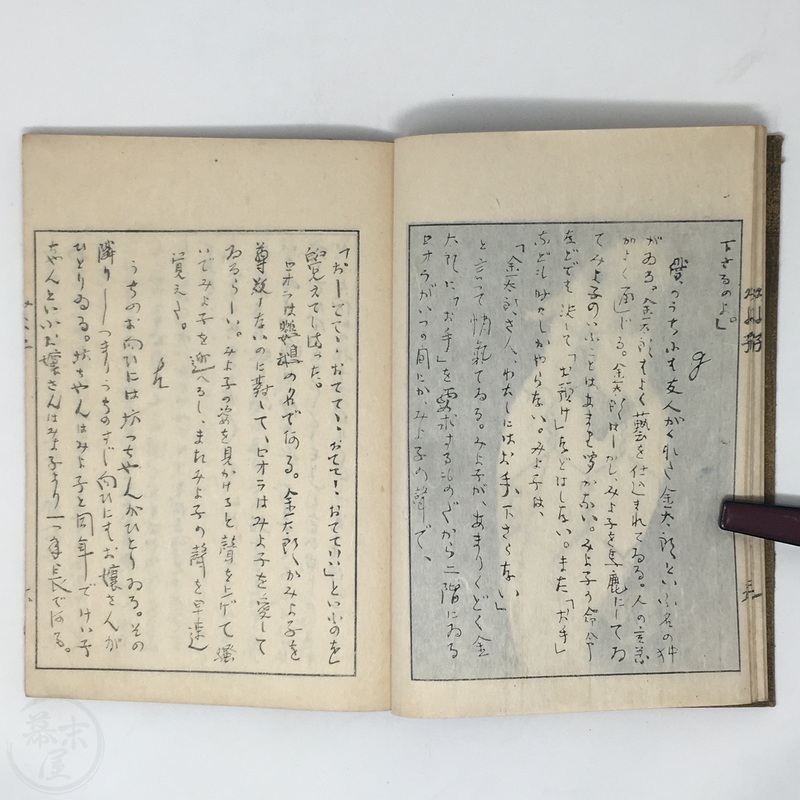 下さるのよ。」
9
僕のうちにも友人がくれた金太郎といふ名の狆
がゐる。金太郎もよく藝を仕込まれてゐる。人の言葉
がよく通じる。金太郎はしかし、みよ子を馬鹿にしてゐ
てみよ子のいふことはあまり聞かない。みよ子の命令
などでも決して「お預け」などはしない。また「お手」
なども時々しかやらない。みよ子は、
「金太郎さん、わたしにはお手、下さらない」
と言つて悄氣てゐる。みよ子が、あまりくどく金
太郎に「お手」を要求するものだから二階にゐる
ロオラがいつの間にか、みよ子の聲で、
「おーてて、おてて、おてて、おてて」といふのを
覺えてしまつた。
ロオラは鸚鵡の名である。金太郎がみよ子を
尊敬しないのに對して、ロオラはみよ子を愛して
ゐるらしい。みよ子の姿を見かけると聲を上げて騷
いでみよ子を迎へるし、またみよ子の聲を早速
覺えた。
うちのお向ひには坊つちやんがひとりゐる。その
隣り——つまりうちのすじ向ひにもお孃さんが
ひとりゐる。坊ちやんはみよ子と同年でけい子
ちやんといふお孃さんはみよ子より一つ年長である。
幕末屋